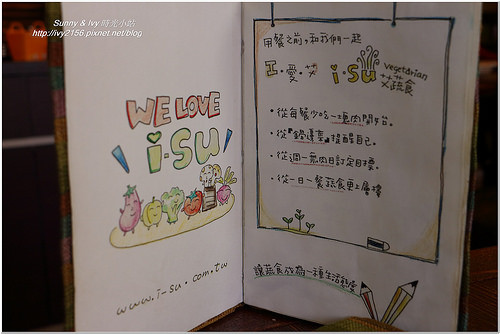 Sunny & Ivy 時光小站
http://ivy2156.pixnet.net/blog
WE LOVE
i·su
www.i-su.com.tw
用餐之前,和我們一起
I·愛·艾 i·su vegetarian
艾蔬食
·從每餐少吃一塊肉開始。
·從『鍋優蔬』提醒自己。
·從週一無肉日訂定目標。
·從一日一餐蔬食更上層樓
讓蔬食成為一種生活態度